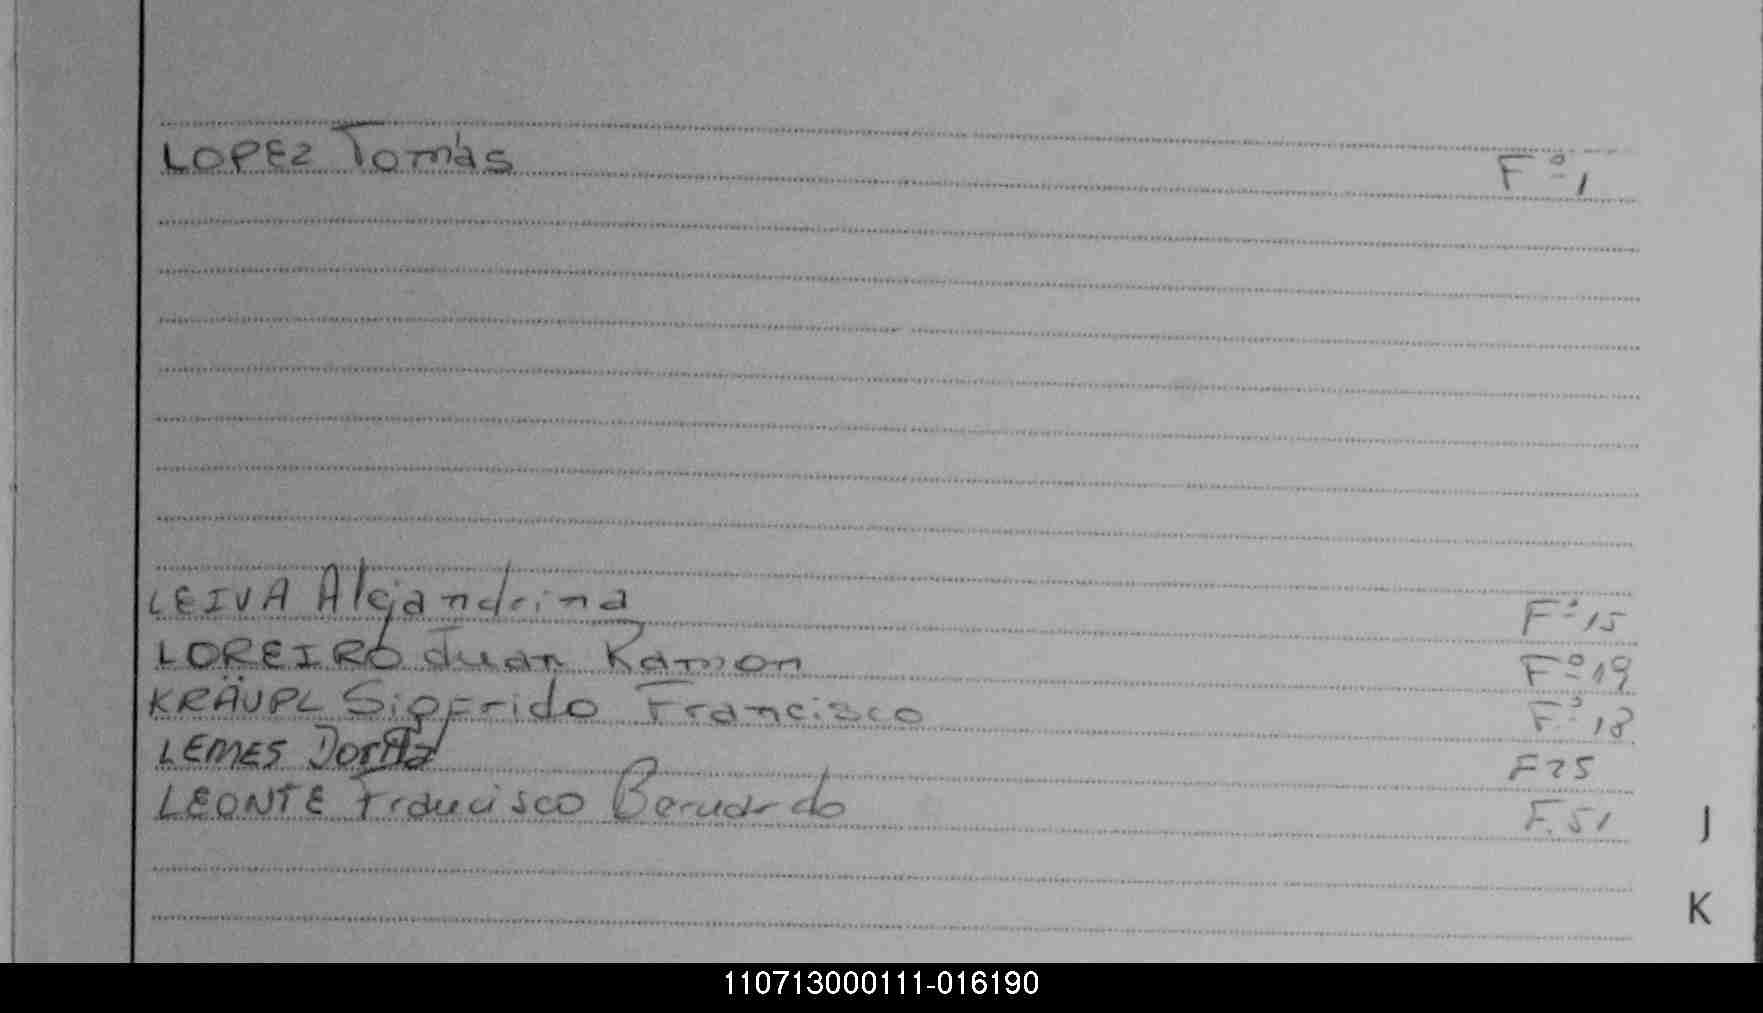 LOPEZ Tomás F°1
LEIVA Alejandrina F°15
LOREIRO Juan Ramon F°19
KRÄUPL Sigfrido Francisco F°18
LEMES F25
LEONTE Francisco Bernardo F.51
J
K
110713000111-016190